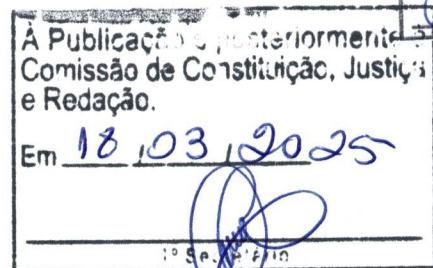 À Publicação e posteriormente à
Comissão de Constituição, Justiça
e Redação.
Em 18 / 03 / 2025
1º Secretário